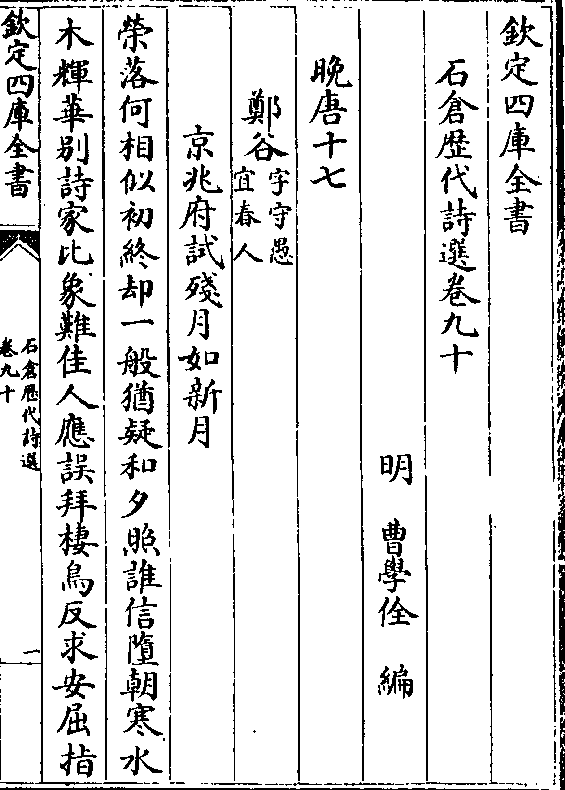 欽定四庫全書
石倉歷代詩選卷九十
明 曹學佺 編
晚唐十七
鄭谷字守愚宜春人
京兆府試殘月如新月
榮落何相似初終却一般猶疑和夕照誰信墮朝寒水
木輝華别詩家比象難佳人應誤拜棲鳥反求安屈指
欽定四庫全書
石倉歷代詩選
卷九十
一